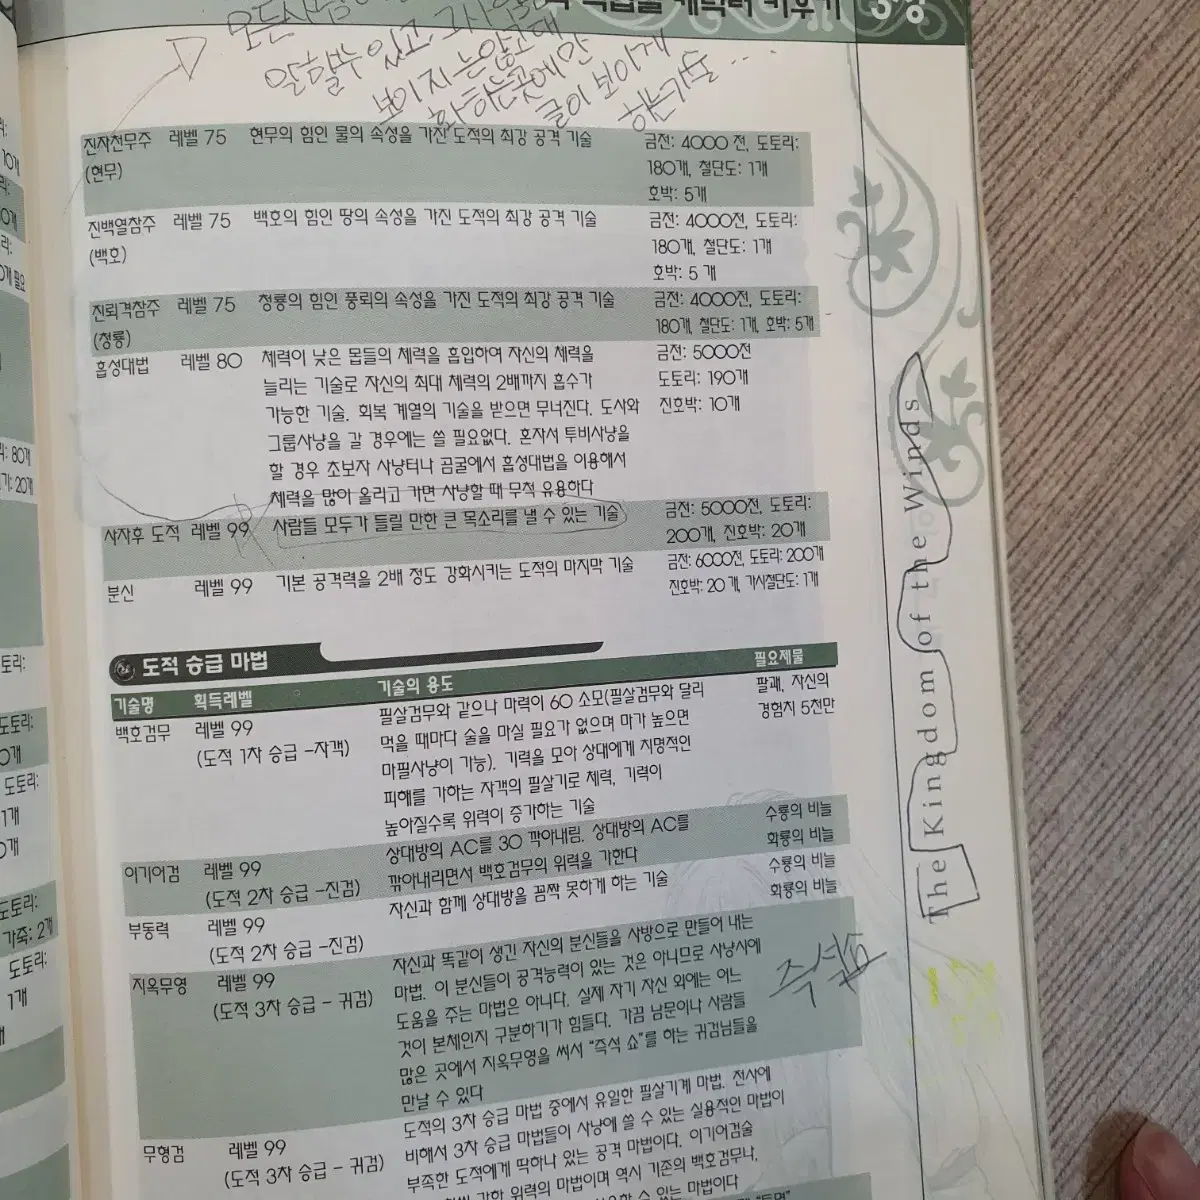 모든
말할수 있고
보이지는않고
글이 보이게
진자천무주 레벨 75 현무의 힘인 물의 속성을 가진 도적의 최강 공격 기술 금전: 4000 전, 도토리:
(현무) 180개, 철단도: 1개
호박: 5개
진백열참주 레벨 75 백호의 힘인 땅의 속성을 가진 도적의 최강 공격 기술 금전: 4000전, 도토리:
(백호) 180개, 철단도: 1개
호박: 5 개
진뢰격참주 레벨 75 청룡의 힘인 풍뢰의 속성을 가진 도적의 최강 공격 기술 금전: 4000전, 도토리:
(청룡) 180개, 철단도: 1개, 호박: 5개
흡성대법 레벨 80 체력이 낮은 몹들의 체력을 흡입하여 자신의 체력을 금전: 5000전
늘리는 기술로 자신의 최대 체력의 2배까지 흡수가 도토리: 190개
가능한 기술. 회복 계열의 기술을 받으면 무너진다. 도사와 진호박: 10개
그룹사냥을 갈 경우에는 쓸 필요없다. 혼자서 투비사냥을
할 경우 초보자 사냥터나 곰굴에서 흡성대법을 이용해서
체력을 많이 올리고 가면 사냥할 때 무척 유용하다
사자후 도적 레벨 99 사람들 모두가 들릴 만한 큰 목소리를 낼 수 있는 기술 금전: 5000전, 도토리:
200개, 진호박: 20개
분신 레벨 99 기본 공격력을 2배 정도 강화시키는 도적의 마지막 기술 금전: 6000전, 도토리: 200개
진호박: 20 개, 가시철단도: 1개
도적 승급 마법
기술명 획득레벨 기술의 용도 필요제물
백호검무 레벨 99 필살검무와 같으나 마력이 60 소모(필살검무와 달리 팔괘, 자신의
(도적 1차 승급 -자객) 먹을 때마다 술을 마실 필요가 없으며 마가 높으면 경험치 5천만
마필사냥이 가능). 기력을 모아 상대에게 치명적인
피해를 가하는 자객의 필살기로 체력, 기력이
높아질수록 위력이 증가하는 기술
이기어검 레벨 99 상대방의 AC를 30 깎아내림. 상대방의 AC를 수룡의 비늘
(도적 2차 승급 -진검) 깎아내리면서 백호검무의 위력을 가한다 화룡의 비늘
부동력 레벨 99 자신과 함께 상대방을 꼼짝 못하게 하는 기술 수룡의 비늘
(도적 2차 승급 -진검) 화룡의 비늘
지옥무영 레벨 99 자신과 똑같이 생긴 자신의 분신들을 사방으로 만들어 내는
(도적 3차 승급 - 귀검) 마법. 이 분신들이 공격능력이 있는 것은 아니므로 사냥시에
도움을 주는 마법은 아니다. 실제 자기 자신 외에는 어느
것이 본체인지 구분하기가 힘들다. 가끔 남문이나 사람들
많은 곳에서 지옥무영을 써서 "즉석 쇼"를 하는 귀검님들을
만날 수 있다
즉석쇼
무형검 레벨 99 도적의 3차 승급 마법 중에서 유일한 필살기계 마법. 전사에
(도적 3차 승급 - 귀검) 비해서 3차 승급 마법들이 사냥에 쓸 수 있는 실용적인 마법이
부족한 도적에게 딱하나 있는 공격 마법이다. 이기어검술
강한 위력의 마법이며 역시 기존의 백호검무나,
수 있는 마법이다
The Kingdom of the Winds